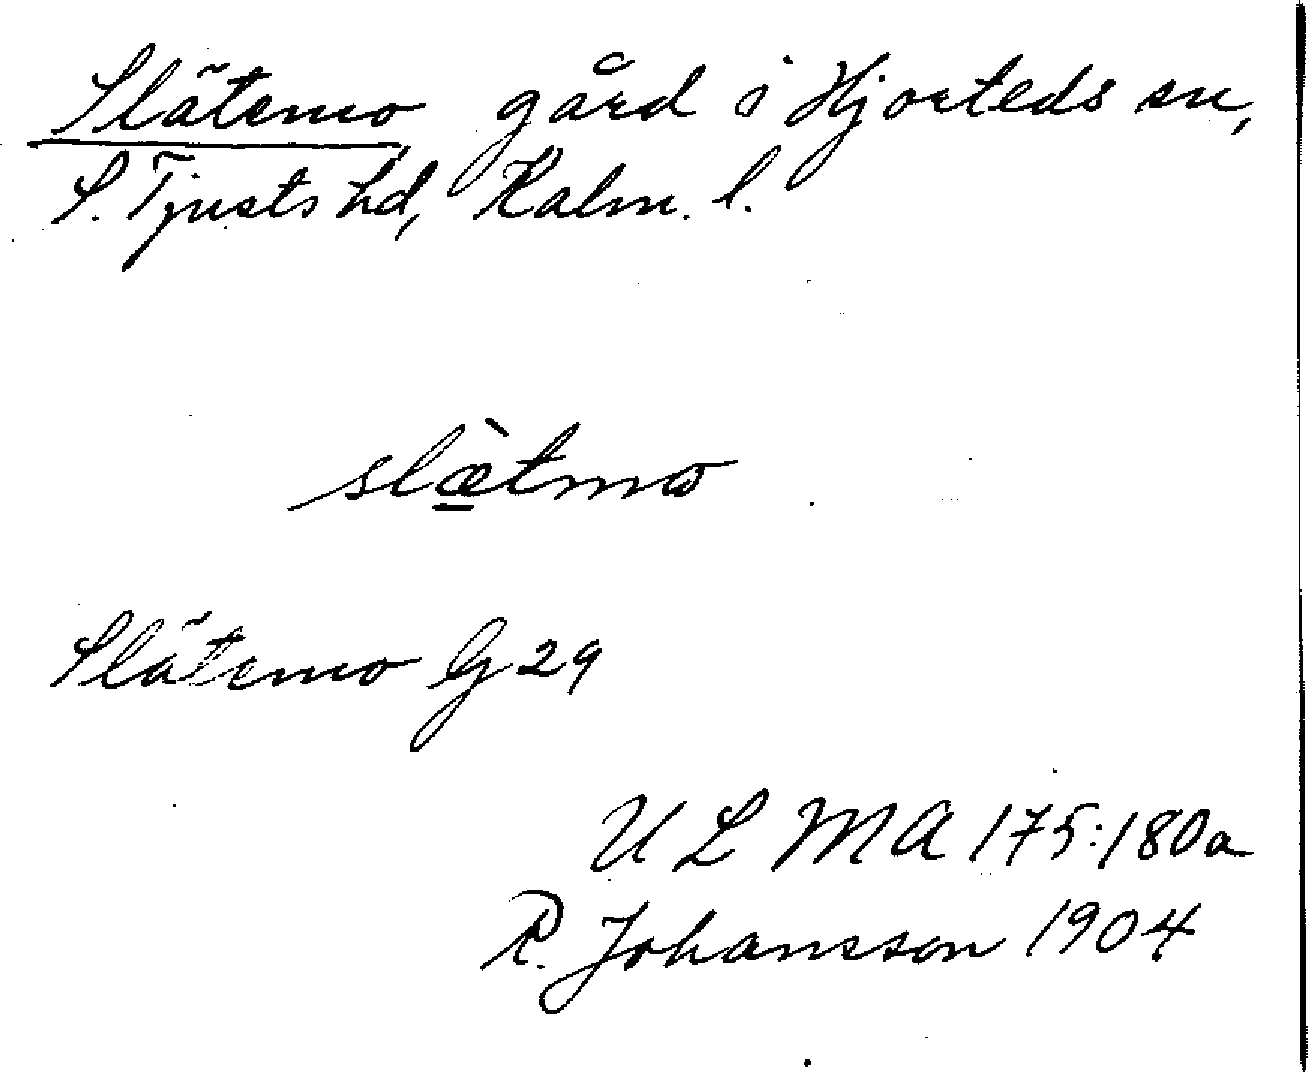 Slätemo gård i Hjorteds sn,
S. Tjusts hd, Kalm. l.
slæ̠̀tmω
Slätemo G 29
ULMA 175:180a
R. Johansson 1904